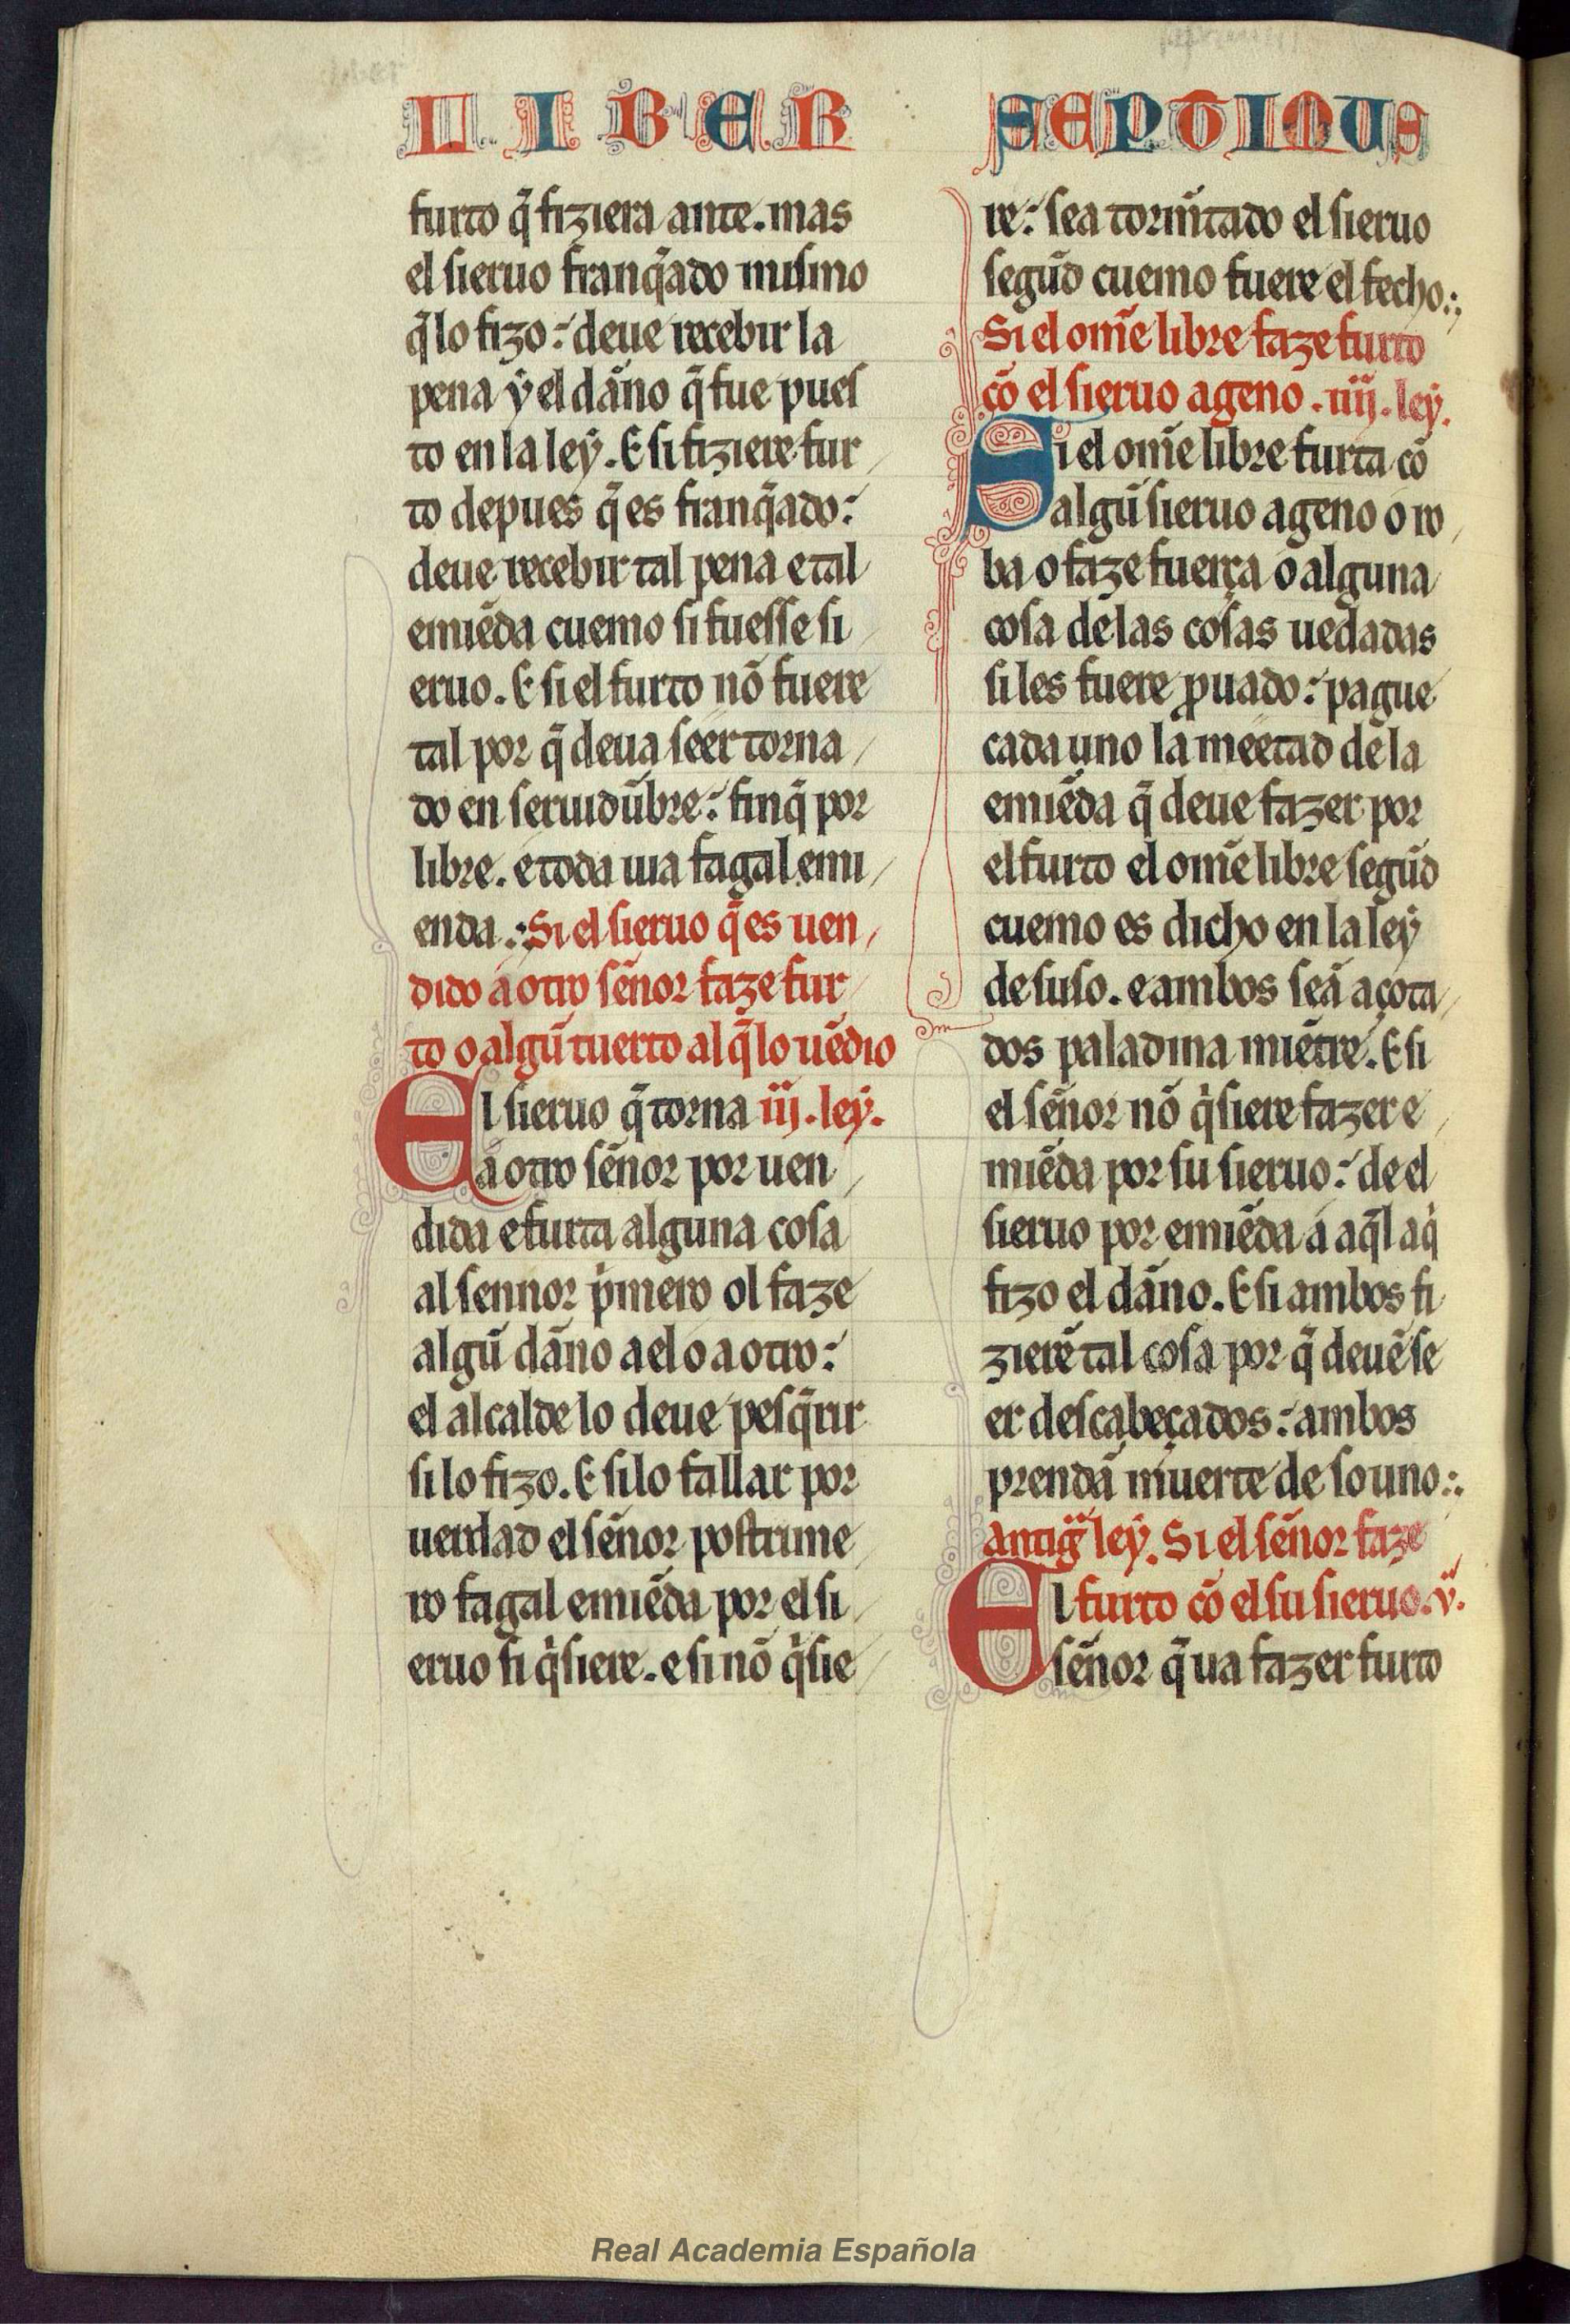 LIBER SEPTIMUS
furto q̃ fiziera ante. mas
el sieruo franq̃ado mismo
q̃ lo fizo: deue recebir la
pena ẏ el dãno q̃ fue pues
to en la leẏ. E si fiziere fur
to depues q̃ es franq̃ado:
deue recebir tal pena e tal
emiẽda cuemo si fuesse si
eruo. E si el furto nõ fuere
tal por q̃ deua seer torna
do en seruidũbre: finq̃ por
libre. e toda uia fagal emi
enda.: Si el sieruo q̃ es uen
dido a otro sẽnor faze fur
to o algũ tuerto al q̃ lo uẽdio
El sieruo q̃ torna iij. leẏ.
a otro sẽnor por uen
dida e furta alguna cosa
al sennor p̃mero ol faze
algũ dãno a el o a otro:
el alcalde lo deue pesq̃rir
si lo fizo. E si lo fallar por
uerdad el sẽnor postrime
ro fagal emiẽda por el si
eruo si q̃siere. e si nõ q̃sie
re: sea tormẽtado el sieruo
segũd cuemo fuere el fecho.:
Si el om̃e libre faze furto
cõ el sieruo ageno. iiij. leẏ.
Si el om̃e libre furta cõ
algũ sieruo ageno o ro
ba o faze fuerça o alguna
cosa de las cosas uedadas
si les fuere ꝓuado: pague
cada uno la meetad de la
emiẽda q̃ deue fazer por
el furto el om̃e libre segũd
cuemo es dicho en la leẏ
de suso. e ambos seã açota
dos paladina miẽtre. E si
el sẽnor nõ q̃siere fazer e
miẽda por su sieruo: de el
sieruo por emiẽda a aq̃l a q̃
fizo el dãno. E si ambos fi
zierẽ tal cosa por q̃ deuẽ se
er descabeçados: ambos
prendã muerte de so uno.:
antig̃ leẏ. Si el sẽnor faze
El furto cõ el su sieruo. v̇.
sẽnor q̃ ua fazer furto
Real Academia Española